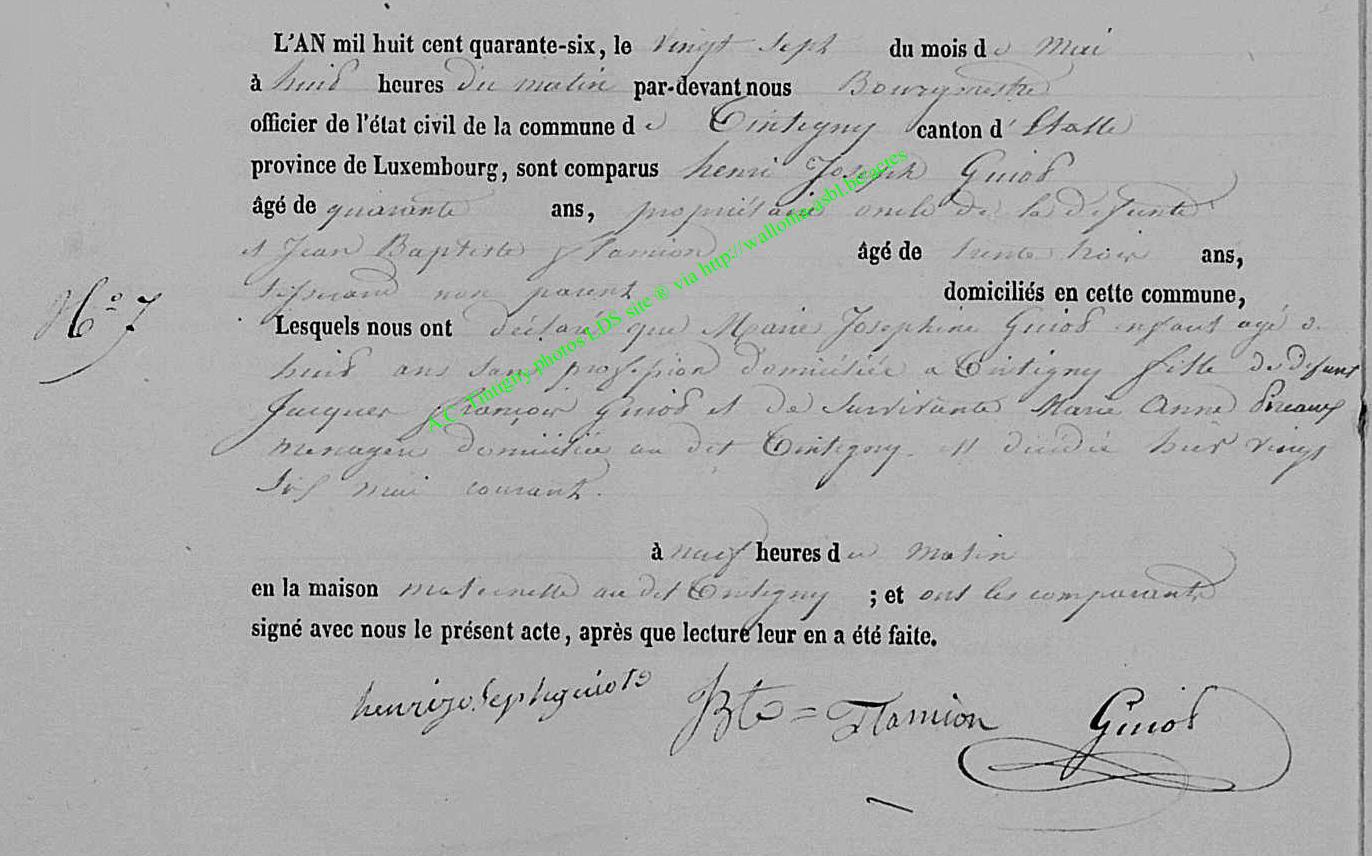 L'AN mil huit cent quarante-six, le vingt sept du mois de Mai
à huit heures du matin par-devant nous Bourgmestre
officier de l'état civil de la commune de Tintigny canton d'Etalle
province de Luxembourg, sont comparus henri Joseph Guiot
âgé de quarante ans, propriétaire oncle de la defunte
et Jean Baptiste Flamion âgé de trente trois ans,
tisserand non parent domiciliés en cette commune,
N° 7
Lesquels nous ont déclaré que Marie Josephine Guiot enfant agé de
huit ans sans profession domiciliée a Tintigny fille de defunt
Jacques françois Guiot et de survivante Marie Anne
menagere domiciliée au dit Tintigny est décédée hier vingt
six mai courant.
à neuf heures du matin
en la maison maternelle au dit Tintigny ; et ont les comparants
signé avec nous le présent acte, après que lecture leur en a été faite.
henrijosephguiot Bte = Flamion Guiot
A.C. Tintigny photos LDS site ® via http://wallonia-asbl.be/actes